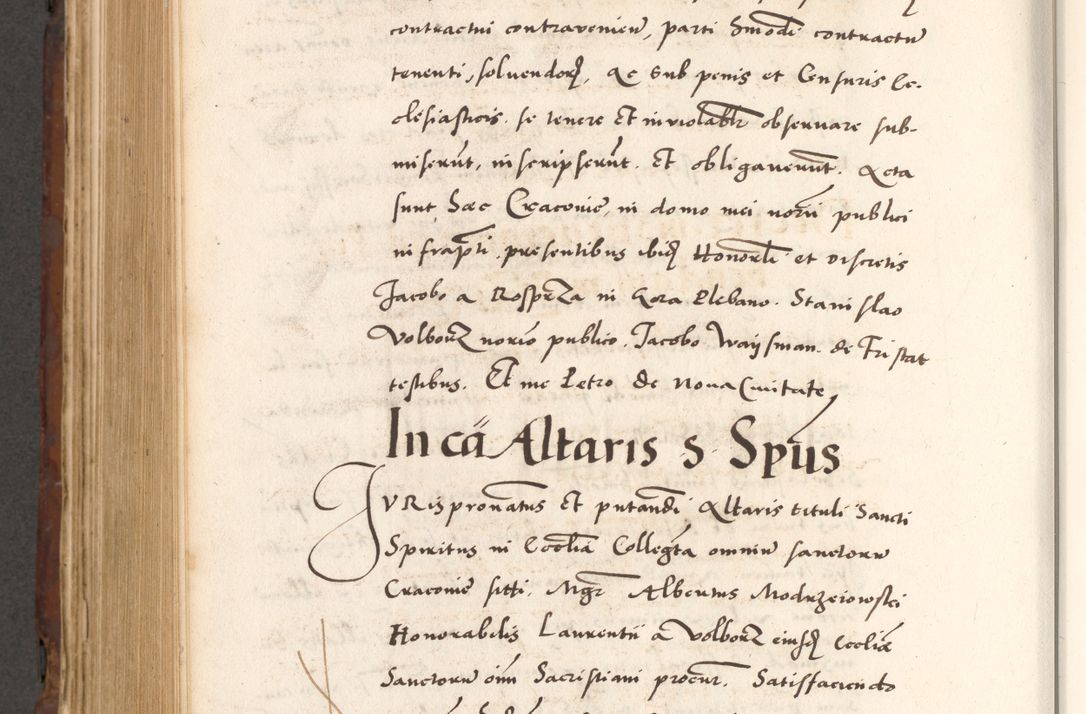 contractui contravenien̄, parti Smodi contractū
tenenti, solvendorꝫ, ac sub penis et Censuris Ec-
clesiasticis se tenere Et inviolablr observare sub-
miserūt, inscripserūt. Et obligaverūt. Acta
sunt Haec Cracovie, in domo mei norii publici
infrapti presentibus ibidꝫ Honorbli et discretis
Jacobo a Rosprza in Gora Plebano. Stanislao
Volborz norio publico. Jacobo Waysman de Fristat
testibus. Et me Petro de Nova Civitate
In cā Altaris S Spūs
JVRispronatus Et putandi Altaris tituli Sancti
Spiritus in Ecclia Collegta omniū sanctorū
Cracovie sitti, Mgr Albertus Modrzeiowsci
Honorabilis Laurentii a Volborz eiusdꝫ Eccliē
Sanctorū oim Sacristiani procur. Satisfaciendo